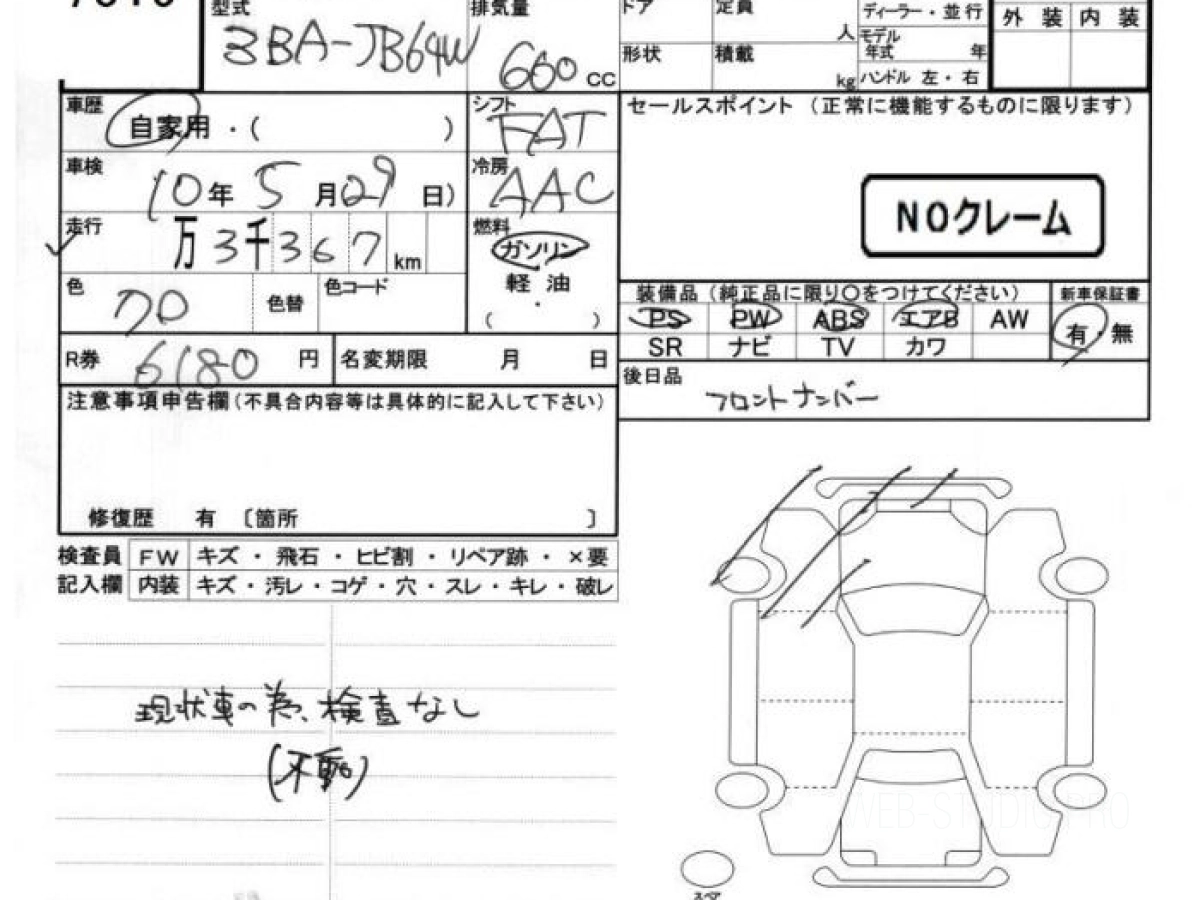 型式 3BA-JB64W
排気量 660 CC
ドア
定員 人
ディーラー・並行
モデル年式 年
形状
積載 kg
ハンドル 左・右
外装 内装
車歴 自家用・( )
シフト FAT
車検 10年5月29日)
冷房 AAC
走行 万3千367km
燃料 ガソリン
軽油
・
( )
色 クロ
色替
色コード
R券 6180円
名変期限 月 日
セールスポイント (正常に機能するものに限ります)
NOクレーム
装備品 (純正品に限り○をつけてください)
新車保証書
PS PW ABS エアB AW
有・無
SR ナビ TV カワ
後日品 フロントナンバー
注意事項申告欄(不具合内容等は具体的に記入して下さい)
修復歴 有 〔箇所 〕
検査員 FW キズ・飛石・ヒビ割・リペア跡・×要
記入欄 内装 キズ・汚レ・コゲ・穴・スレ・キレ・破レ
現状車の為、検査なし
(不動)
WEB-STUDIO.PRO
スペア